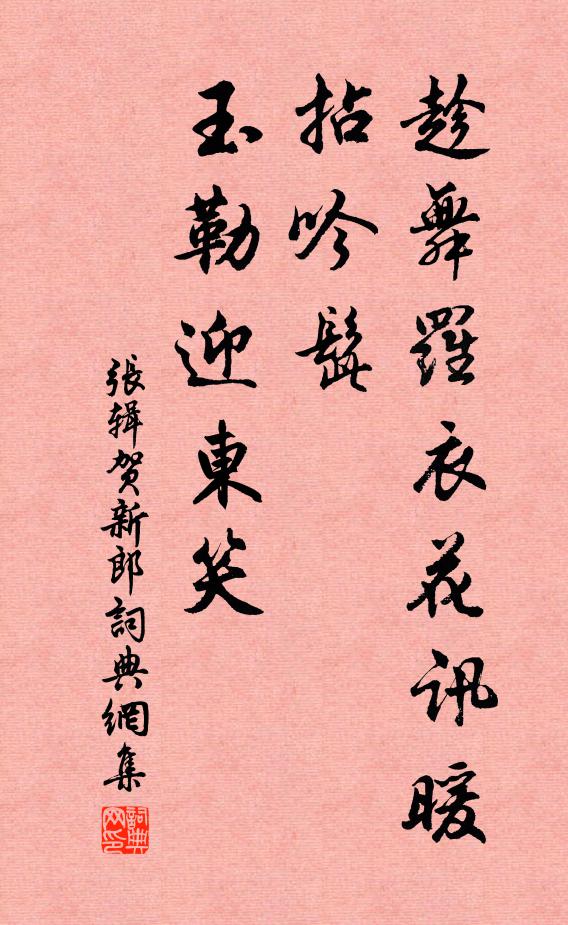 趁舞羅衣花訊暖
拈吟髭
玉勒迎東笑
張辑贺新郎詞典網集
詞典网印